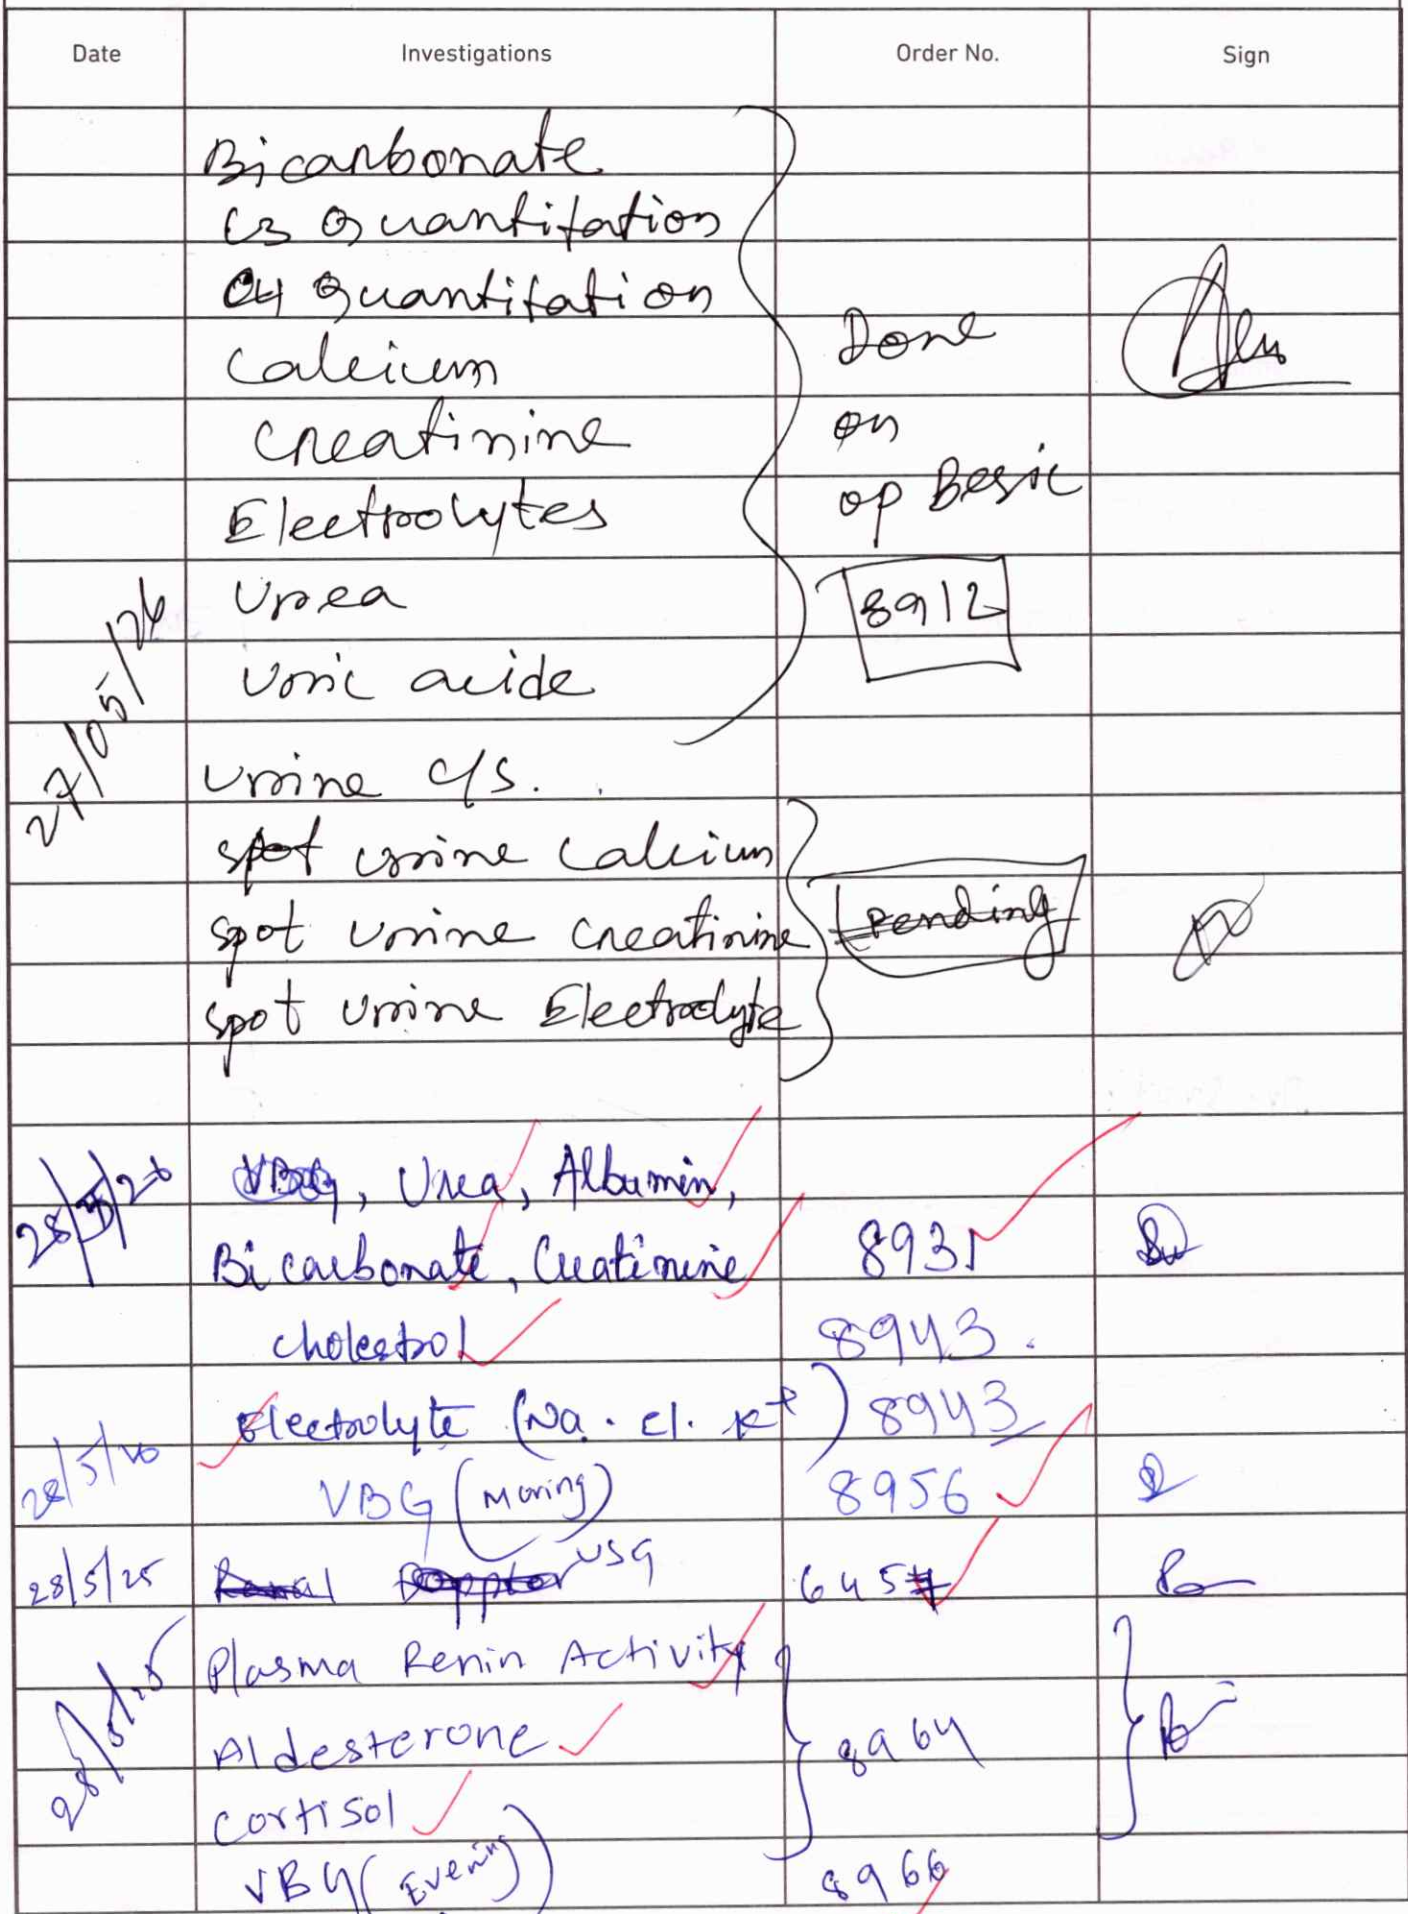 Date Investigations Order No. Sign
Bicarbonate
C3 Quantitation
C4 Quantitation
Calcium Done
Creatinine on
Electrolytes op Besic
Urea 8912
27/05/26
Uric acide
Urine c/s.
spot urine Calcium
spot urine creatinine Pending
spot urine Electrolyte
28/5/26 VBG, Urea, Albumin,
Bicarbonate, Creatinine 8931
cholestrol 8943.
Electrolyte (Na. cl. K+) 8943
28/5/26 VBG (Morning) 8956
28/5/25 Renal Doppler USG 645
28/5/25 Plasma Renin Activity
Aldesterone 8964
Cortisol
VBG (Evening) 8966